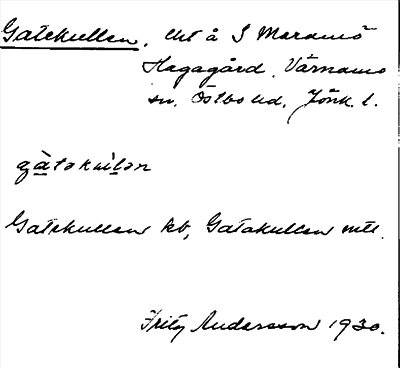 Gatekullen, lht å S Maramö
Hagagård, Värnamo
sn, Östbo hd, Jönk. l.
gàtəkùlən
Gatekullen kb, Gatakullen mtl.
Fritz Andersson 1930.